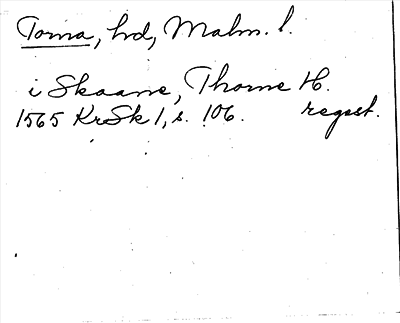 Torna, hd, Malm. l.
i Skaane, Thorne H.
1565 KrSk 1, s. 106. regest.